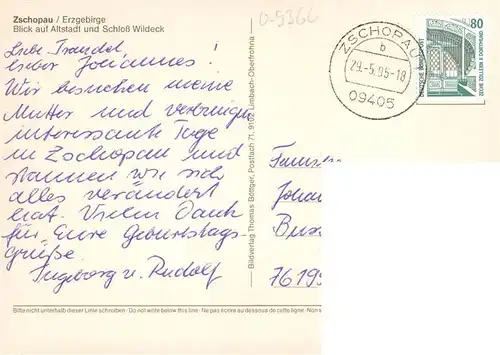 Zschopau / Erzgebirge
Blick auf Altstadt und Schloß Wildeck
Liebe Traudel,
lieber Johannes!
Wir besuchen meine
Mutter und verbringen
interessante Tage
in Zschopau und
staunen wie sich
alles verändert
hat. Vielen Dank
für Eure Geburtstags-
grüße.
Ingeborg u. Rudolf
Bitte nicht unterhalb dieser Linie schreiben · Do not write below this line · Ne pas écrire au dessous de cette ligne · Non s
Bildverlag Thomas Böttger, Postfach 71, 9102 Limbach-Oberfrohna
0-5366
ZSCHOPAU 1
b
29.-5.95-18
09405
80
DEUTSCHE BUNDESPOST
ZECHE ZOLLERN II DORTMUND
Johan
7619